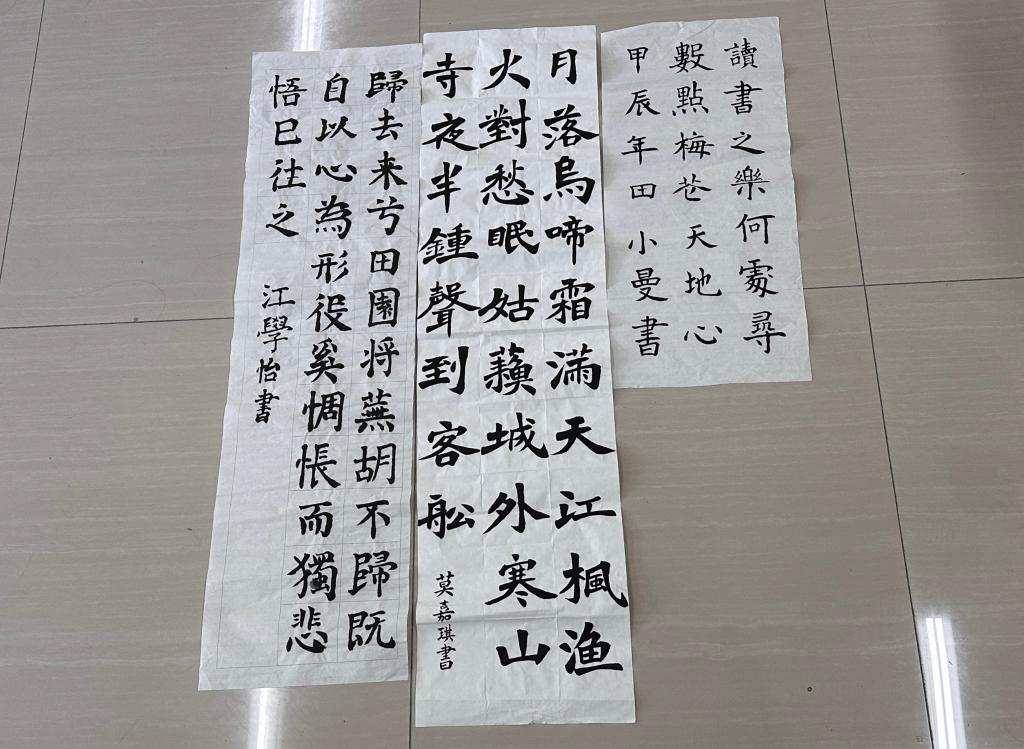 讀書之樂何處尋
數點梅花天地心
甲辰年田小曼書
月落烏啼霜滿天江楓渔
火對愁眠姑蘓城外寒山
寺夜半鍾聲到客舩
莫嘉琪書
歸去来兮田園将蕪胡不歸既
自以心為形役奚惆悵而獨悲
悟已往之
江學怡書